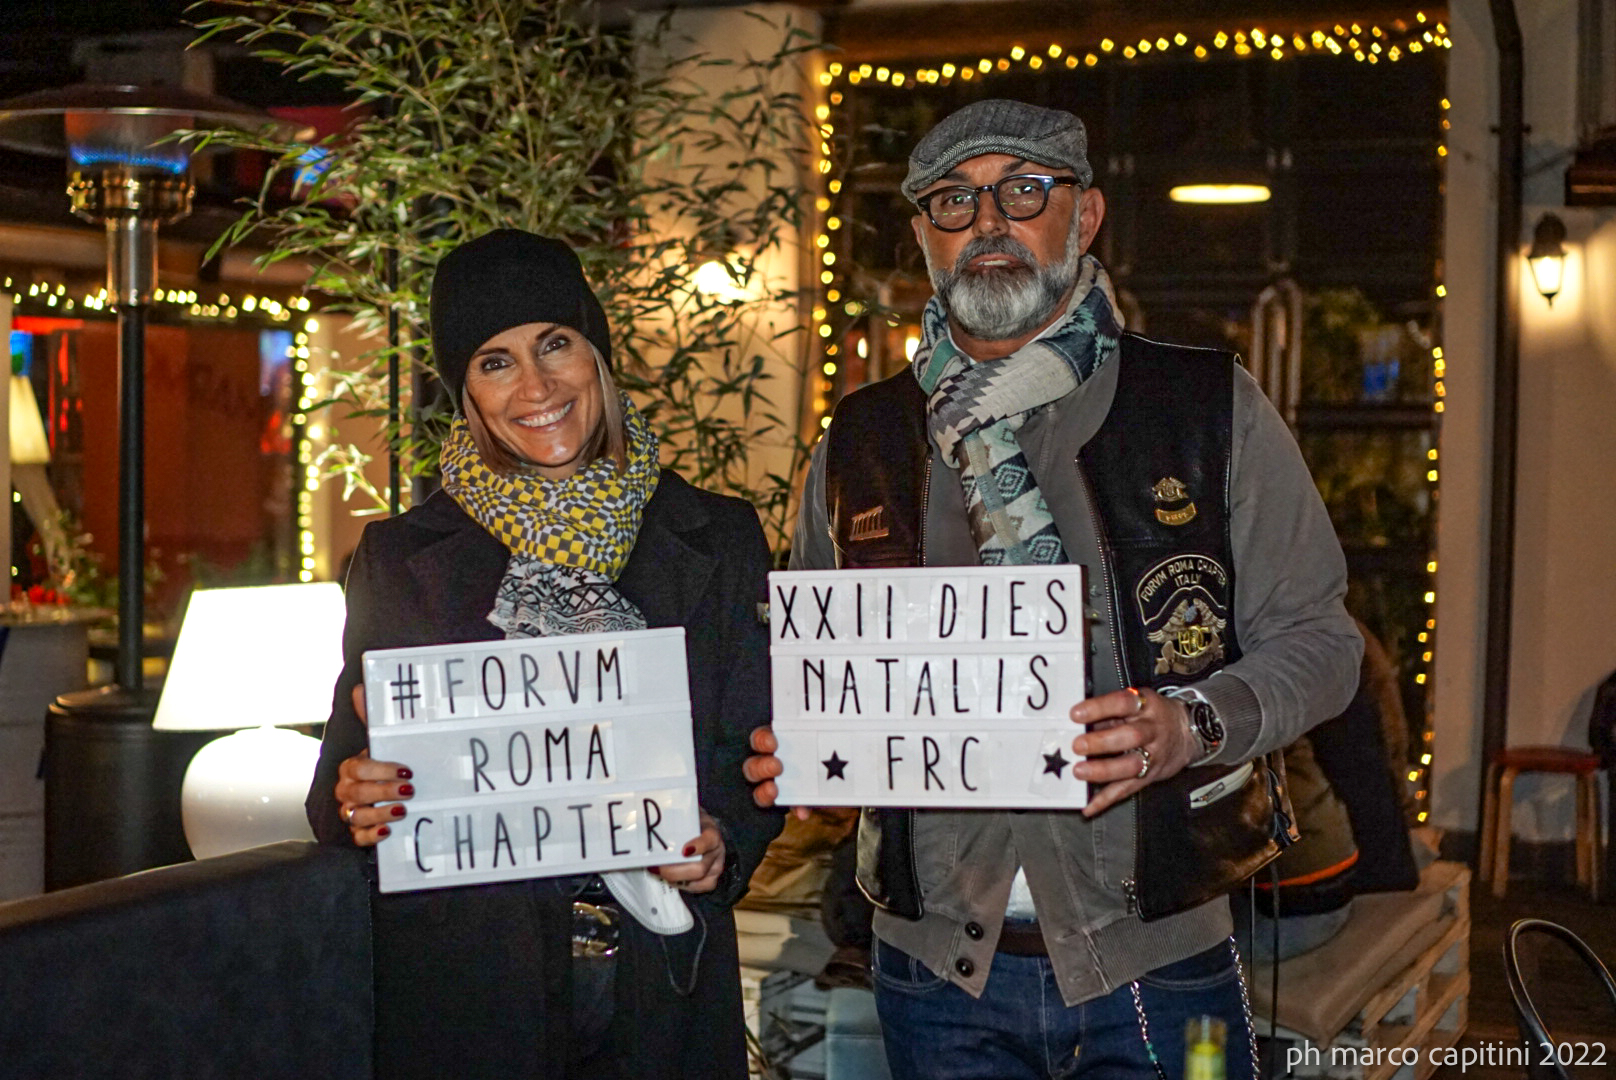 #FORVM
ROMA
CHAPTER
XXII DIES
NATALIS
★ FRC ★
FORVM ROMA CHAPTER
ITALY
ph marco capitini 2022